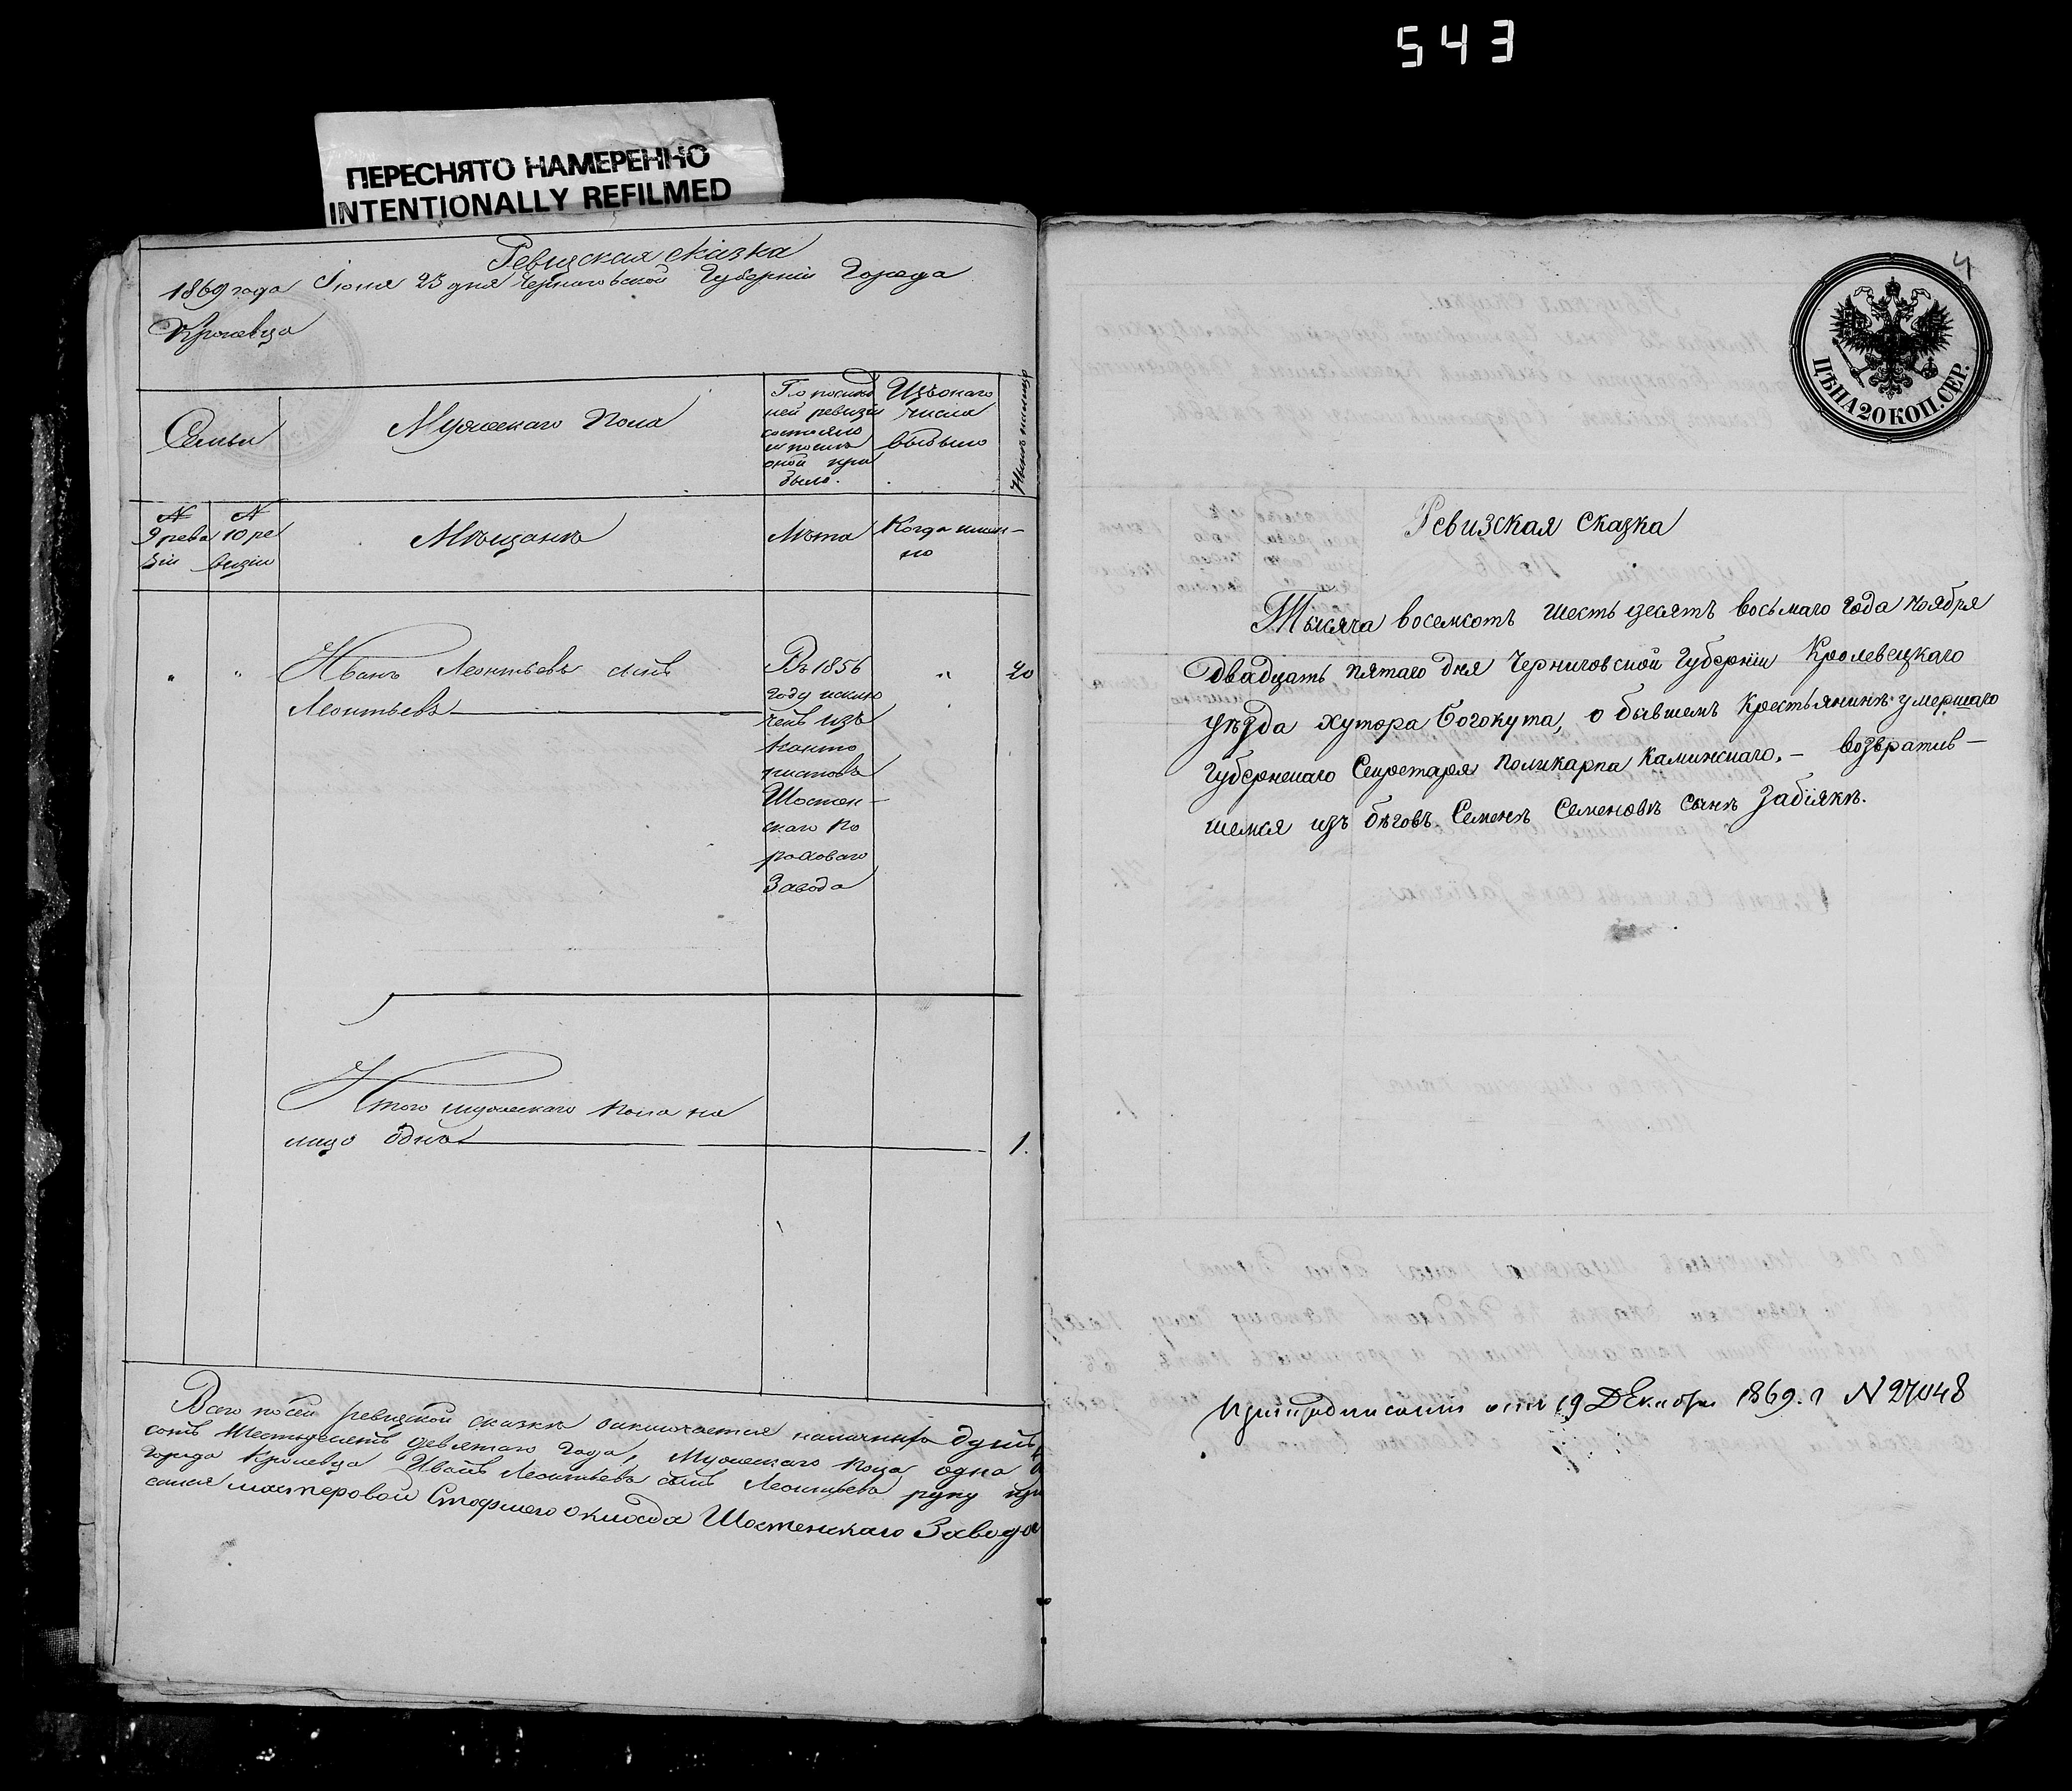 543
ПЕРЕСНЯТО НАМЕРЕННО
INTENTIONALLY REFILMED
Ревизская сказка
1869 года Июня 23 дня Черниговской Губерніи Города
Кролевца
Семьи
Мужескаго Пола
По послѣд
ней ревизіи
состояло
и послѣ
оной при
было.
Изъ онаго
числа
выбыло
Нынѣ на лицо
№
9 реви
зіи
№
10 ре
визіи
Мѣщанъ
Лѣта
Когда имен-
но
" " Иванъ Леонтьевъ сынъ
Леонтьевъ
Въ 1856
году исклю
ченъ изъ
канто
нистовъ
Шостен-
скаго По
роховаго
Завода
"
20
Итого мужескаго пола на
лицо одна
1.
Всего по сей ревизской сказкѣ заключается наличныхъ душъ
сотъ Шестьдесятъ девятаго Года, Мужескаго пола одна
города Кролевца Иванъ Леонтьевъ сынъ Леонтьевъ руку
мастеровой Шостенскаго Завода
4
ЦѢНА 20 КОП. СЕР.
Ревизская Сказка
Тысяча восемсотъ шестьдесятъ восьмаго года ноября
двадцать пятаго дня Черниговской Губерніи Кролевецкаго
уѣзда хутора Богокута, о бывшемъ крестьянинѣ умершаго
Губернскаго Секретаря Поликарпа Каминскаго. – возвратив–
шемся изъ бѣговъ Семенъ Семеновъ сынъ Забіякъ.
19 Декабря 1869. г № 27048